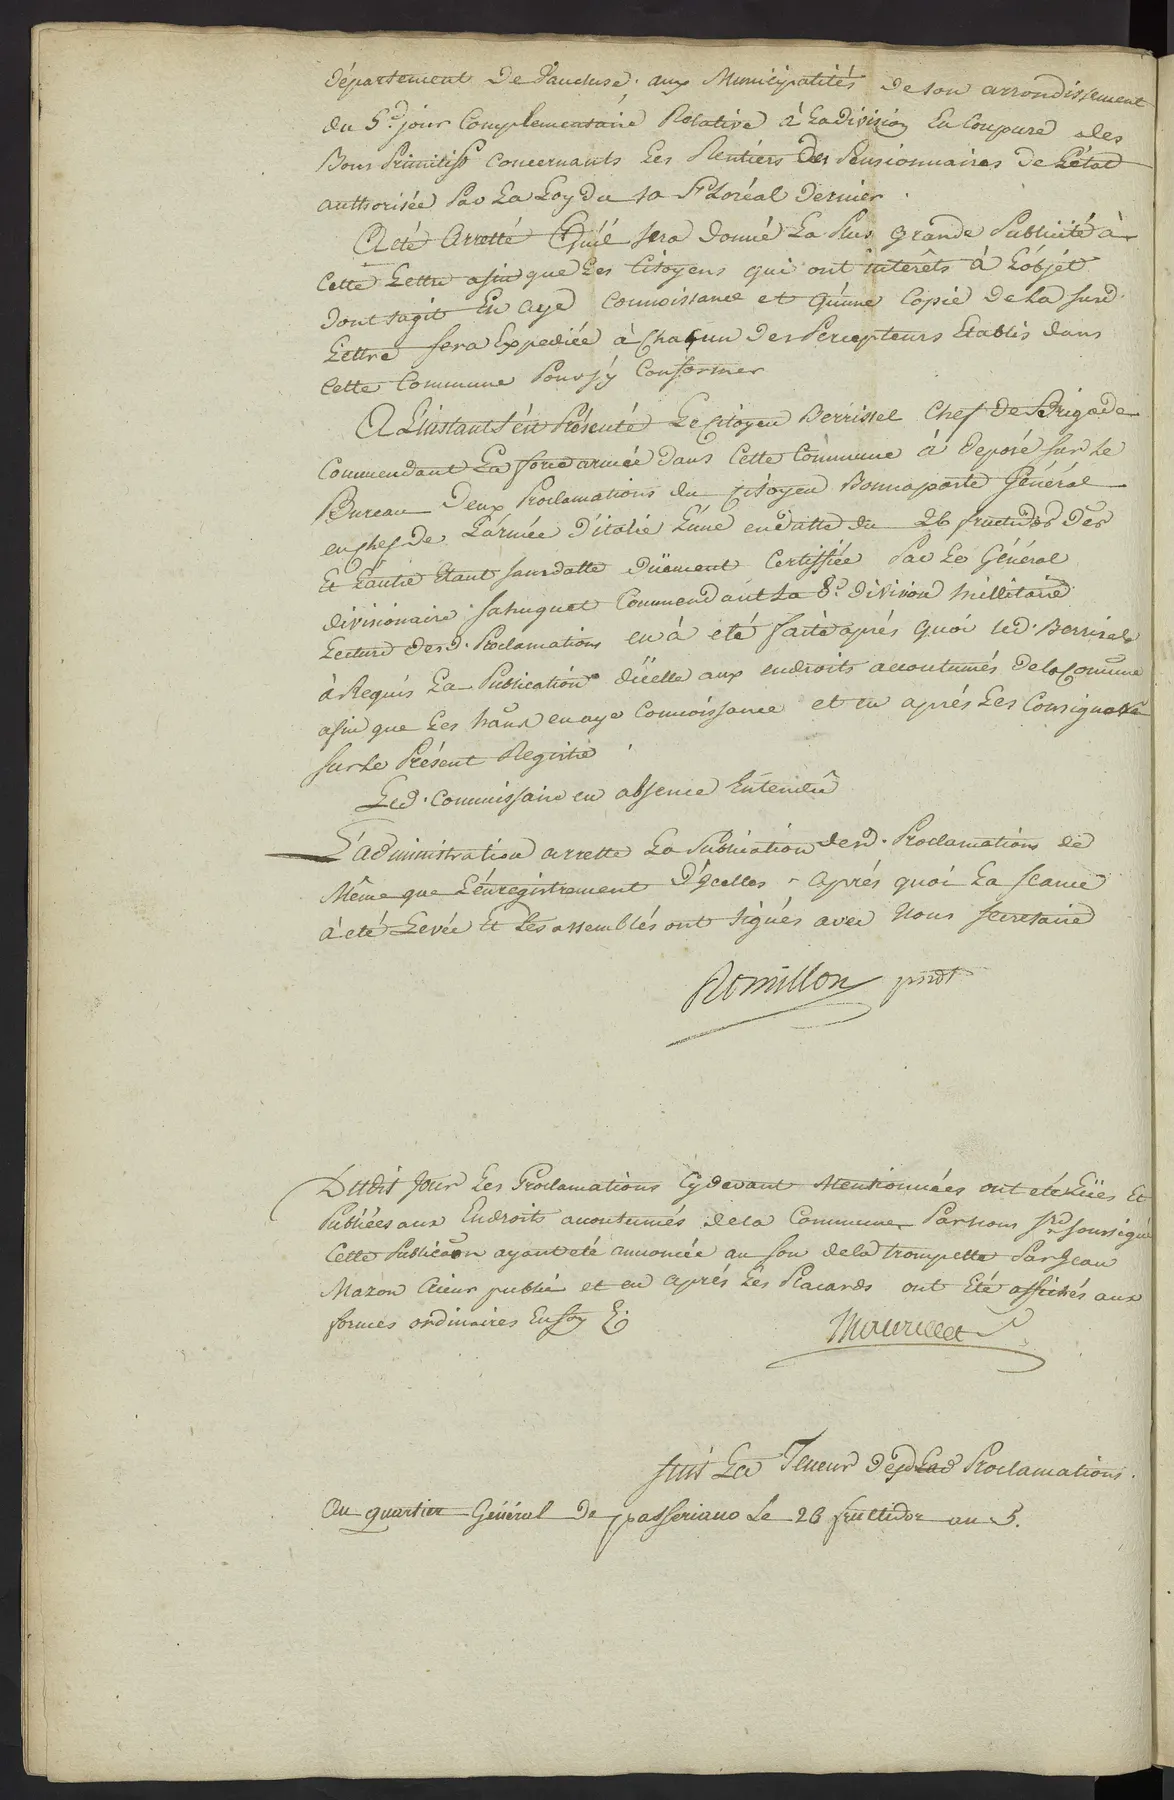 département De Vaucluse. aux Municipalités de son arrondissement
du 5.e jour Complémentairé Rélative à La division En Coupure des
Bons Primitifs concernants Les Rentiers Des Pensionnaires De L'état
authorisée Par La Loy du 10 Floréal Dernier.
A été Arretté Qu'il sera Donné La Plus grande Publicité à
Cette Lettre afin que Les Citoyens qui ont intérêts à L'objét
Dont sagit En aye Connoissance et qu'une Copie De La Susd.
Lettre sera Expediée à Chacun Des Percepteurs Etablis dans
Cette Commune Pour s'y Conformer
A L'instant s'ést Présenté Le Citoyen Berrissel Chef De Brigade
Commendant La force armée Dans Cette Commune à Déposé sur Le
Bureau Deux Proclamations du Citoyen Bonnaparte Général
en chef De L'armée D'italie L'une en datte du 26 fructidor Der
Et L'autre Etant sans datte Düement Certiffiée Par Le Général
divisionaire Sahuguet Commendant La 8.e division Millitaire
Lecture Desd. Proclamations en à été faite aprés quoi led. Berrissel
à Requis La Publication D'icelle aux endroits accoutumés De la Comune
afin que Les haux en aye Connoissance et en aprés Les Consigner
sur Le Présent Registre
Led. Commissaire en absence Entendu
L'administration arrette La Publication desd. Proclamations de
Même que L'énregistrement D'ycelles. Aprés quoi La séance
à été Levée Et Les assemblés ont signés avec Nous secretaire
Romillon prsdt
Dudit Jour Les Proclamations Cy devant Mentionnées ont été Lües Et
Publiées aux Endroits accoutumés de la Commune Par nous srd soussigné
Cette Publicaon ayant été annoncée au son de la trompette Par Jean
Mazon Crieur public et en aprés Les Placards ont Eté affichés aux
formes ordinaires En foy &.
Mourellet S
Suit La Teneur Desd Proclamations.
Au quartier Général De passeriano Le 26 fructidor an 5.